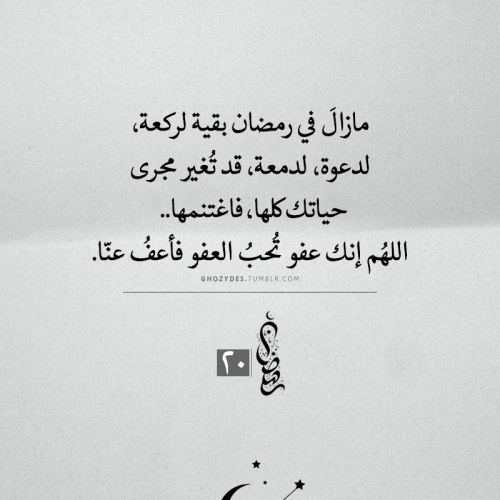 مازالَ في رمضان بقية لركعة،
لدعوة، لدمعة، قد تُغير مجرى
حياتك كلها، فاغتنمها..
اللهُم إنك عفو تُحبُ العفو فأعفُ عنّا.
GHOZYDES.TUMBLR.COM
رمضان
٢٠